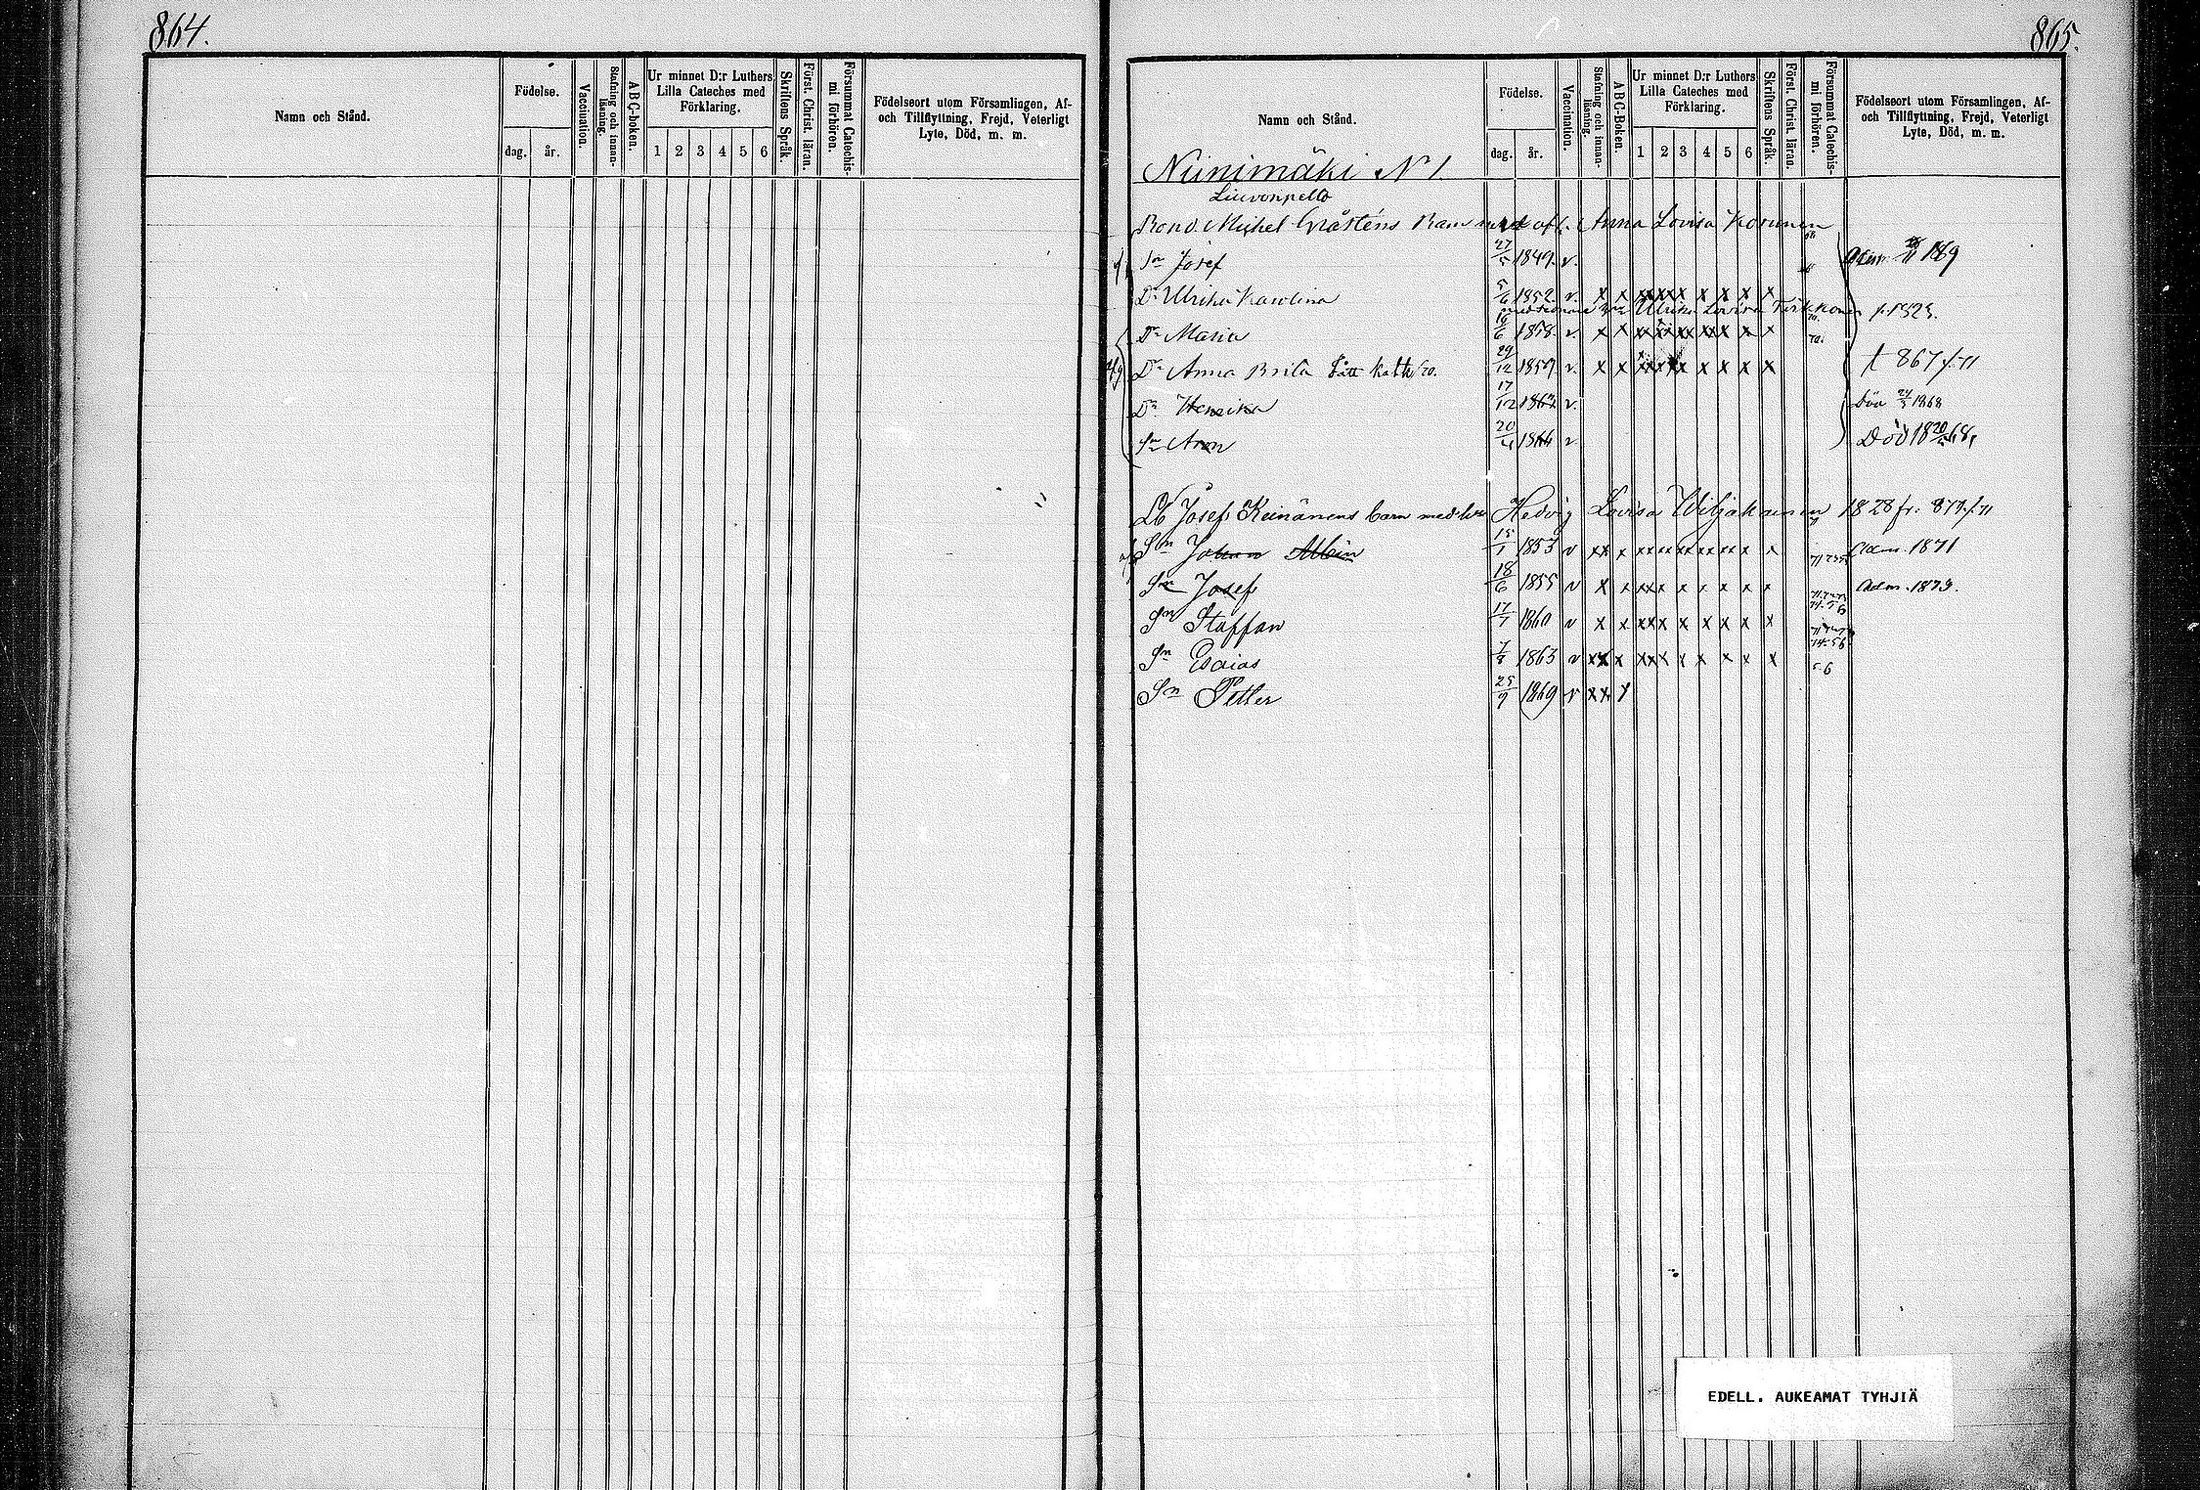 864.
Namn och Stånd.
Födelse.
dag. år.
Vaccination.
Stafning och innan-läsning.
ABC-boken.
Ur minnet D:r Luthers
Lilla Cateches med
Förklaring.
1 2 3 4 5 6
Skriftens Språk.
Först. Christ. läran.
Försummat Catechis-mi förhören.
Födelseort utom Församlingen, Af-
och Tillflyttning, Frejd, Veterligt
Lyte, Död, m. m.
865.
Namn och Stånd.
Födelse.
dag. år.
Vaccination.
Stafning och innan-läsning.
ABC-Boken.
Ur minnet D:r Luthers
Lilla Cateches med
Förklaring.
1 2 3 4 5 6
Skriftens Språk.
Först. Christ. läran.
Försummat Catechis-mi förhören.
Födelseort utom Församlingen, Af-
och Tillflyttning, Frejd, Veterligt
Lyte, Död, m. m.
Niinimäki N 1
Bond. Michel Gråsténs Barn med afl. Anna Lovisa Korunen
Sn Josef 27/5 1849 v.
Dr Ulrika Karolina 5/6 1852 v. x x xxxx x x x x x
Ulrika Lovisa
Dr Maria 19/6 1858 v. x x x xx xx xx x x x
Dr Anna Brita 29/12 1857 v. x x xxx x x x x x x t 867 f. 71
Dr Henrika 17/12 1862 v. Död 1868
Sn Aron 20/4 1866 v Död 18 20/5 68
Lb Josef Keinänens barn med h. Hedvig Lovisa Wiljakainen 1828 fr. 877 f. 71
Sn Johan Albin 15/1 1853 v xx x x xx xx x xx x x Adm. 1871
Sn Josef 18/6 1855 v x x xxx x x x x x x Adm. 1873.
Sn Staffan 17/7 1860 v x x xxx x x x x x
Sn Esaias 7/8 1863 v xx x xxx x x x x x 5-6
Sn Petter 25/9 1869 v xx x
EDELL. AUKEAMAT TYHJIÄ